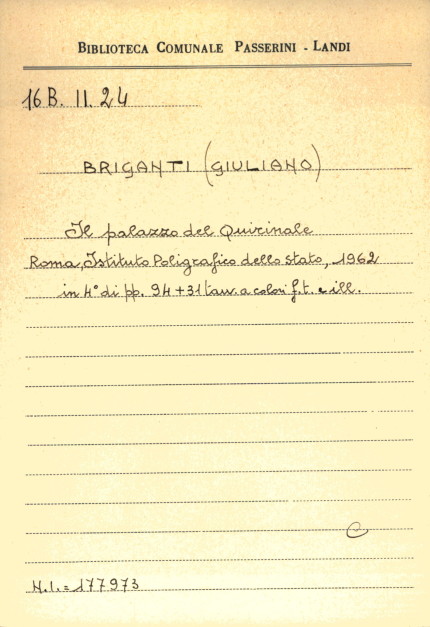 BIBLIOTECA COMUNALE PASSERINI - LANDI
16 B. II. 24
BRIGANTI (GIULIANO)
Il palazzo del Quirinale
Roma, Istituto Poligrafico dello Stato, 1962
in 4° di pp. 94 + 31 tav. a colori f.t. e ill.
C
N.I. = 177973